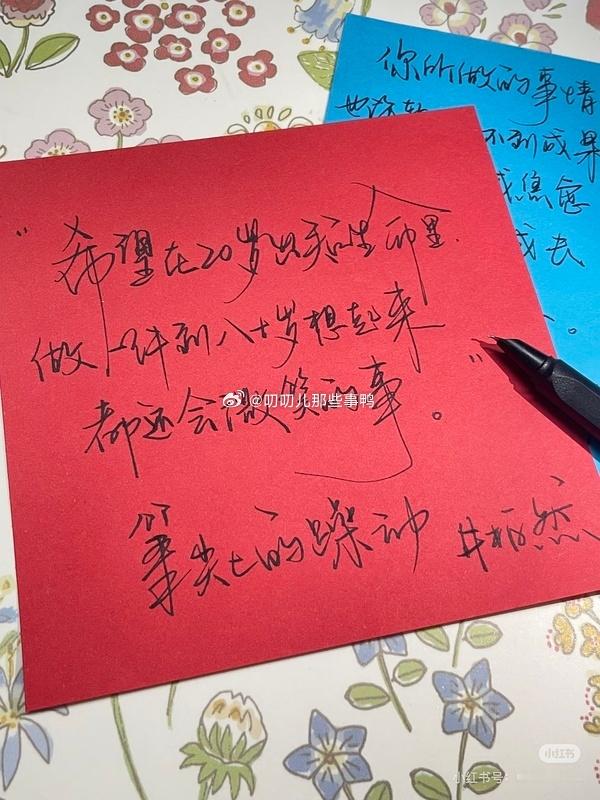 你所做的事情
也许
不到成果
成长
。
“希望在20岁出头的生命里.
做一件到八十岁想起来
都还会微笑的事。”
@叨叨儿那些事鸭
笔尖上的躁动 井柏然
小红书
小红书号: